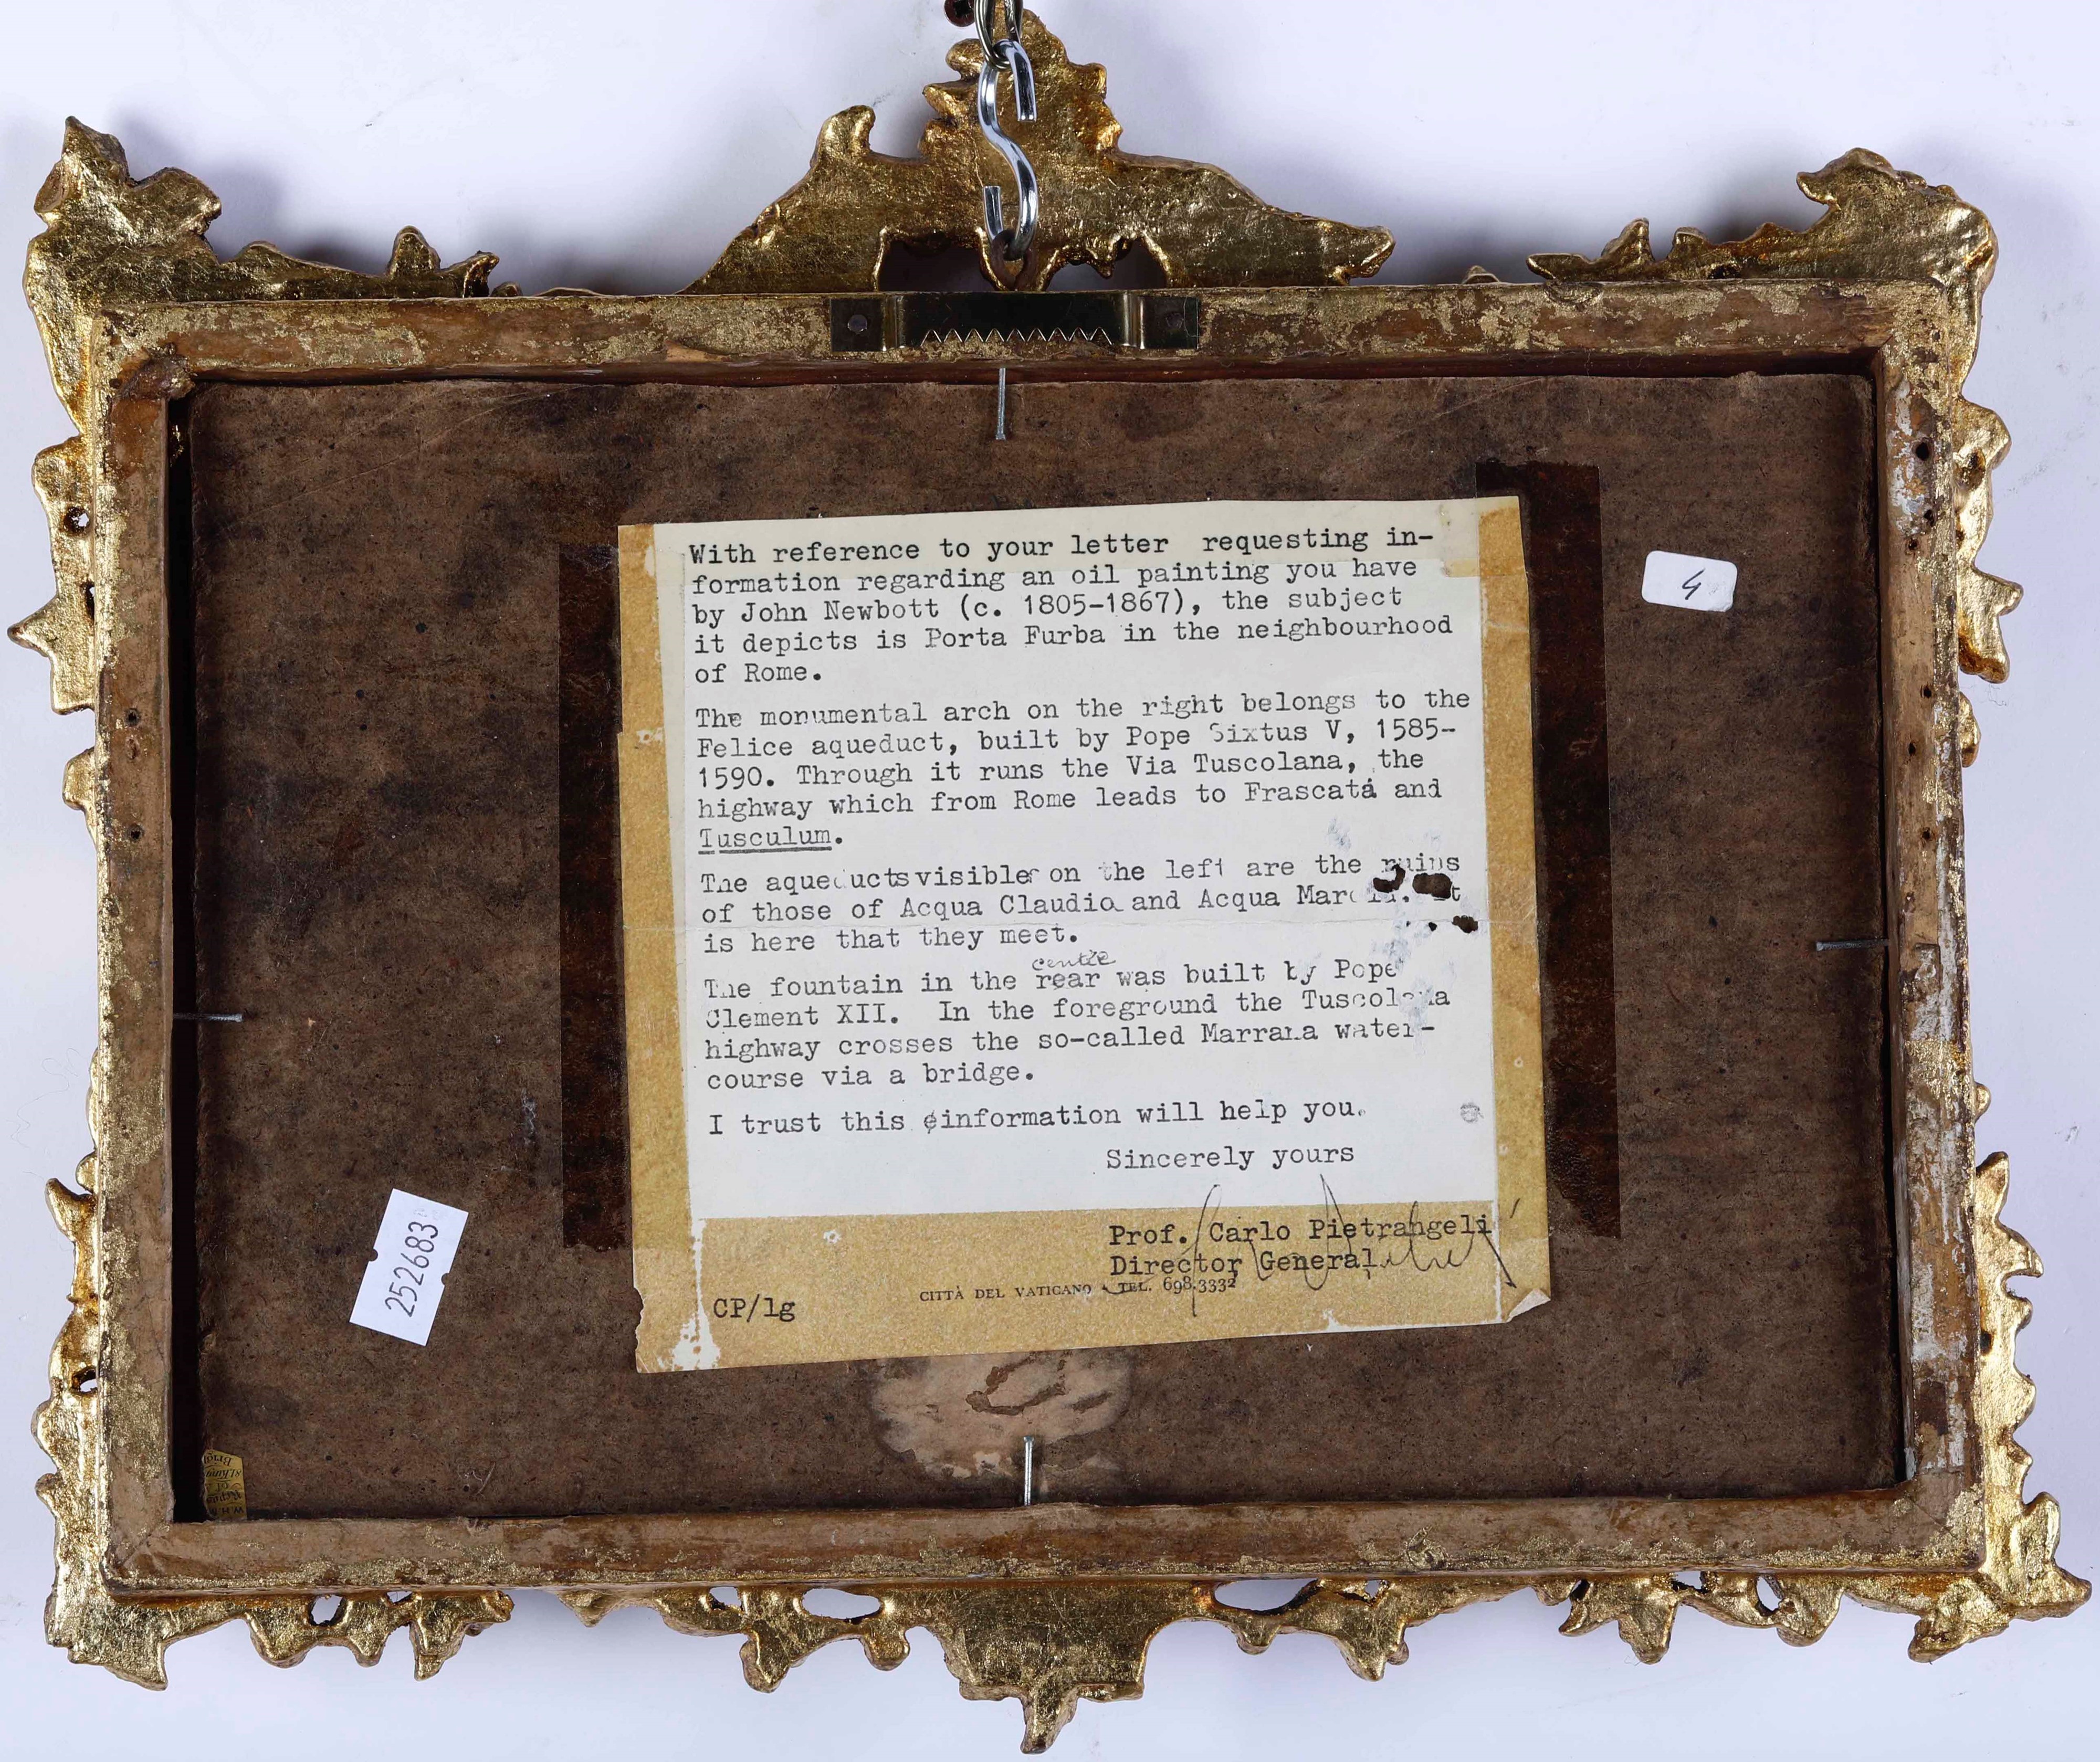 With reference to your letter requesting in-
formation regarding an oil painting you have
by John Newbott (c. 1805-1867), the subject
it depicts is Porta Furba in the neighbourhood
of Rome.
The monumental arch on the right belongs to the
Felice aqueduct, built by Pope Sixtus V, 1585-
1590. Through it runs the Via Tuscolana, the
highway which from Rome leads to Frascati and
Tusculum.
The aqueducts visible on the left are the ruins
of those of Acqua Claudia and Acqua Marcia. It
is here that they meet.
centre
The fountain in the rear was built by Pope
Clement XII. In the foreground the Tuscolana
highway crosses the so-called Marrana water-
course via a bridge.
I trust this information will help you.
Sincerely yours
Prof. Carlo Pietrangeli
Director General
CITTÀ DEL VATICANO - TEL. 698.3332
CP/lg
4
252683